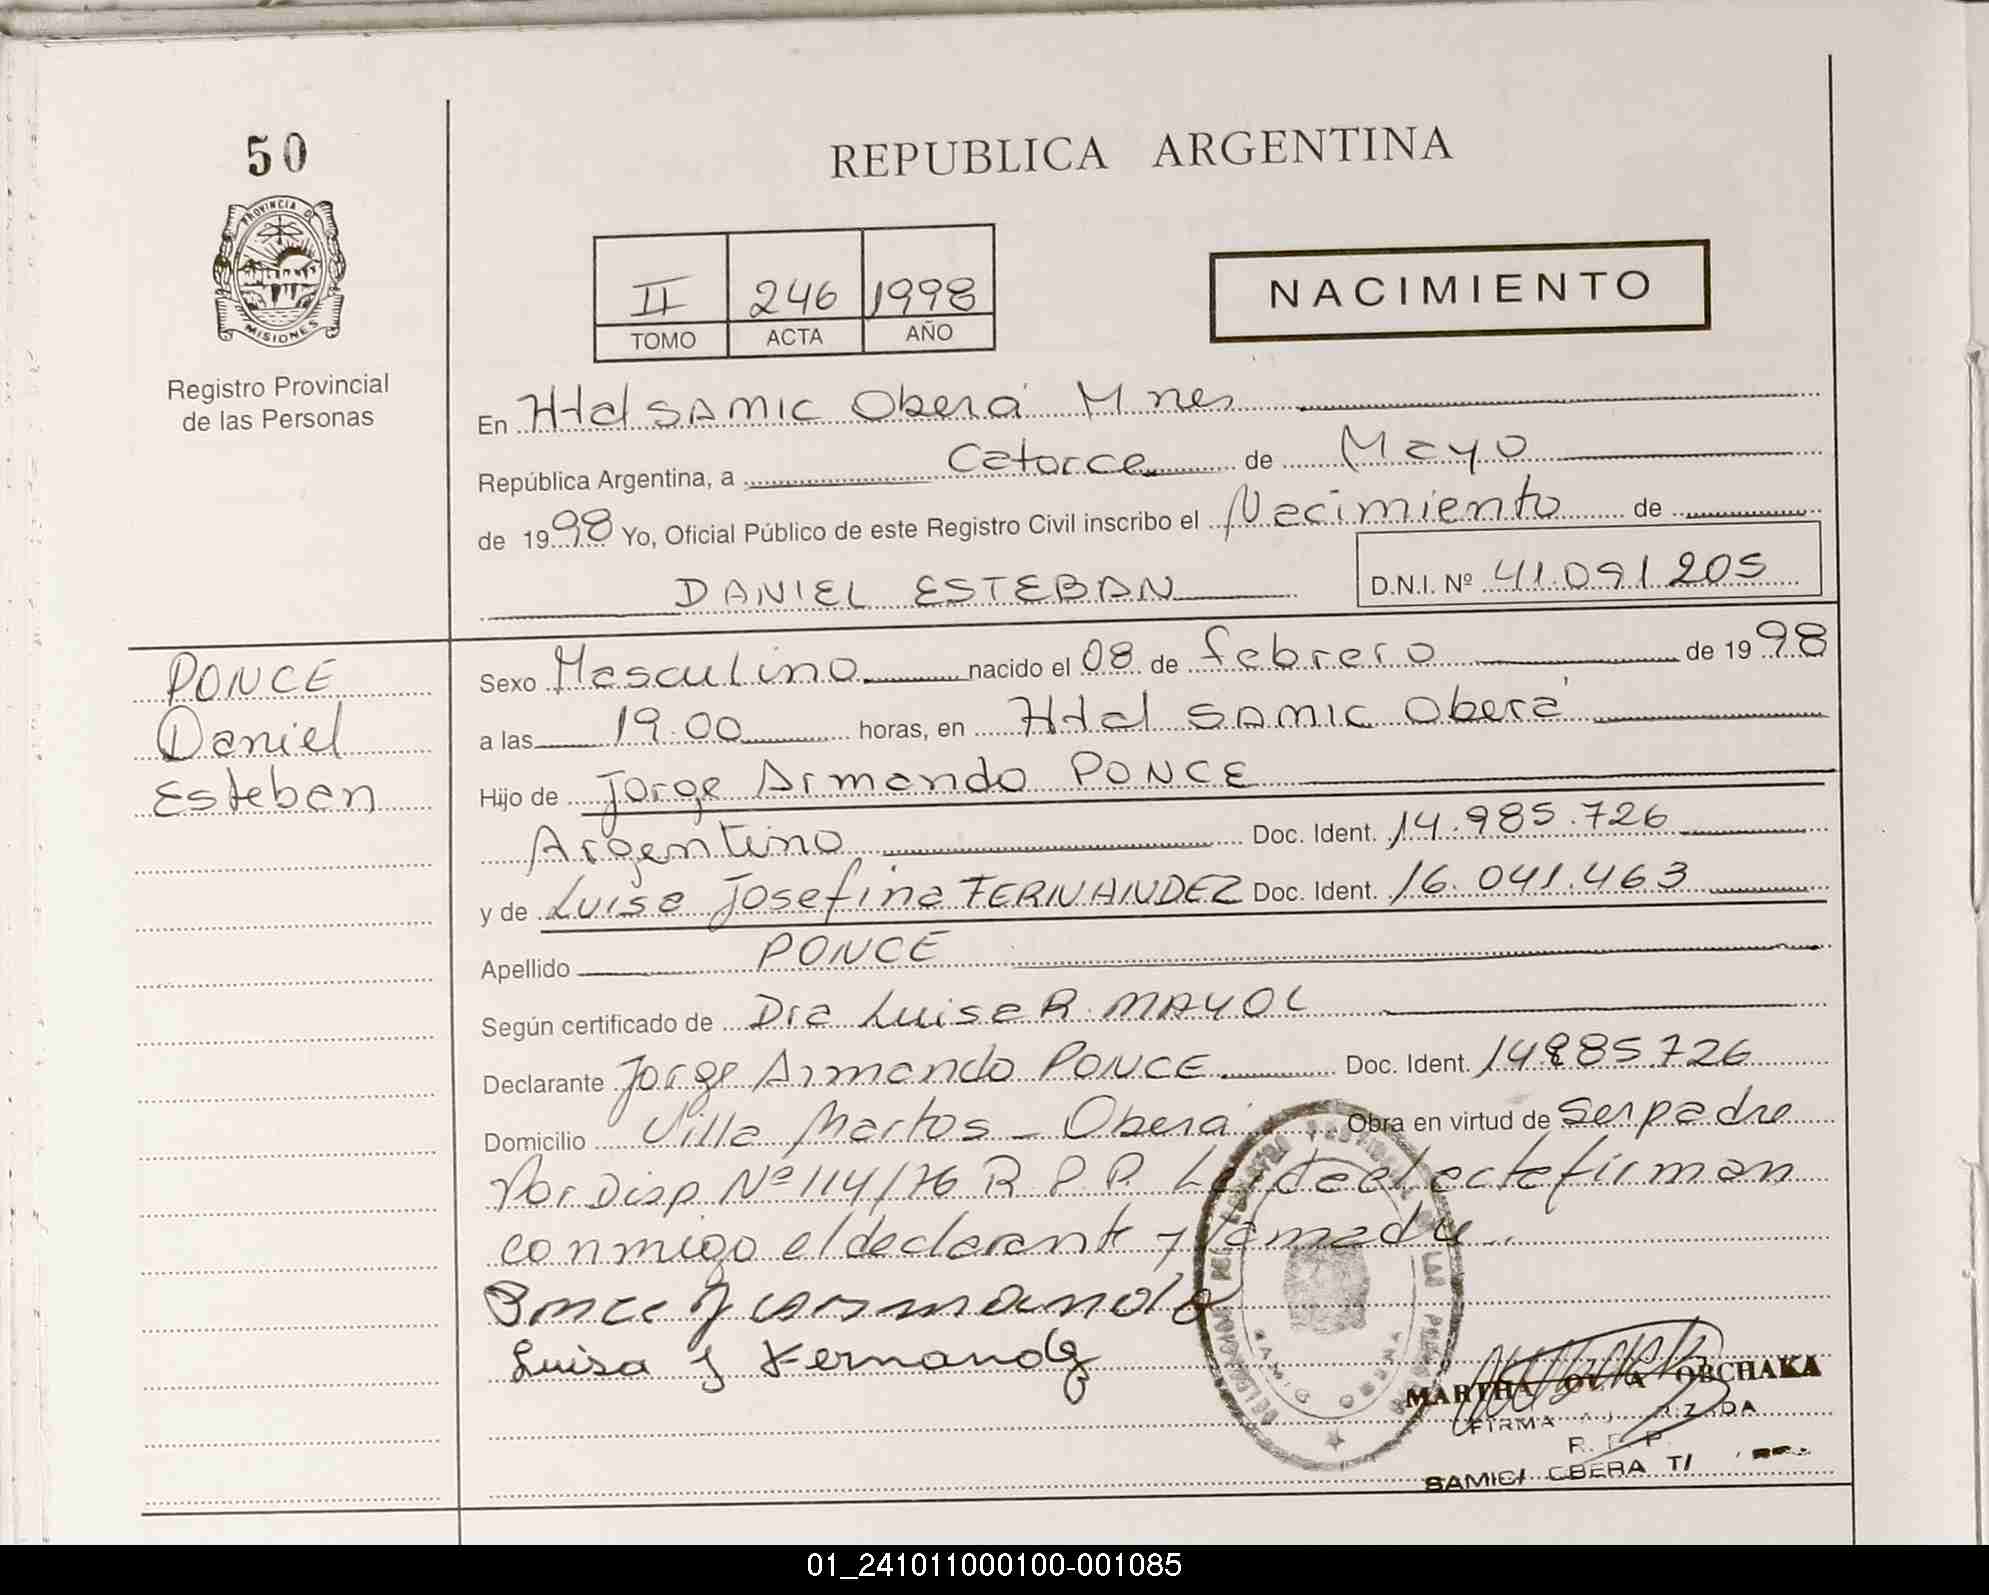 50
PROVINCIA DE
MISIONES
Registro Provincial
de las Personas
REPUBLICA ARGENTINA
II 246 1998
TOMO ACTA AÑO
NACIMIENTO
En Htal SAMIC Oberá Mnes
República Argentina, a Catorce de Mayo
de 1998 Yo, Oficial Público de este Registro Civil inscribo el Nacimiento de
DANIEL ESTEBAN D.N.I. Nº 41.091.205
PONCE
Daniel
Esteban
Sexo Masculino nacido el 08 de febrero de 1998
a las 19.00 horas, en Htal SAMIC Oberá
Hijo de Jorge Armando PONCE
Argentino Doc. Ident. 14.985.726
y de Luisa Josefina FERNANDEZ Doc. Ident. 16.041.463
Apellido PONCE
Según certificado de Dra Luisa R. MAYOL
Declarante Jorge Armando PONCE Doc. Ident. 14.985.726
Domicilio Villa Martos - Oberá Obra en virtud de ser padre
Por Disp Nº 114/76 R.P.P. Leída el acta firman
conmigo el declarante y la madre
Ponce J Armando
Luisa J Fernandez
MARTHA OBCHAKA
FIRMA
R. P. P.
SAMIC OBERA
01_241011000100-001085